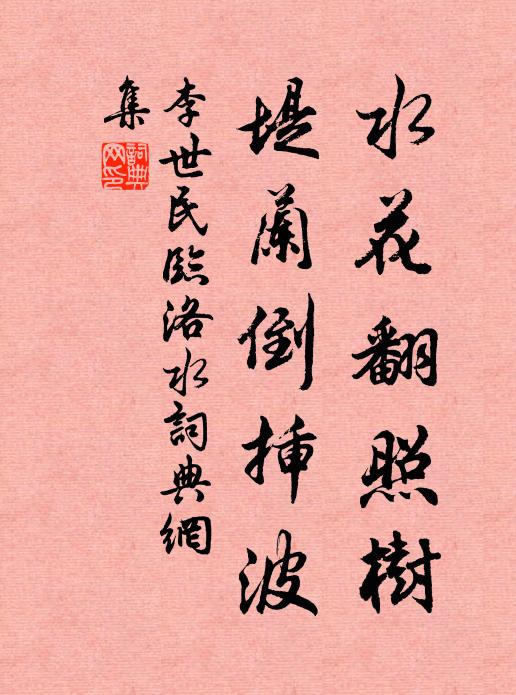 水花翻照樹
堤蘭倒插波
李世民臨洛水詞典網
集
詞典網印